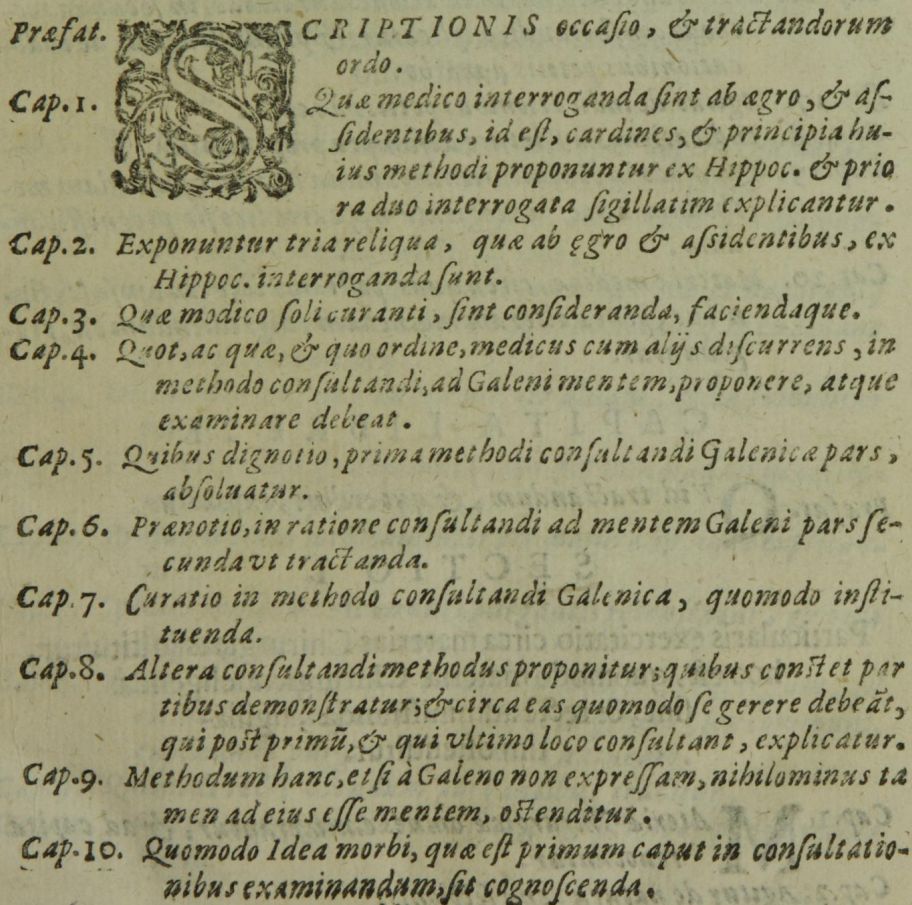 Præfat. SCRIPTIONIS occaſio, & tractandorum
ordo.
Cap. 1. Quæ medico interroganda ſint ab ægro, & aſ-
ſidentibus, id eſt, cardines, & principia hu-
ius methodi proponuntur ex Hippoc. & prio
ra duo interrogata ſigillatim explicantur.
Cap. 2. Exponuntur tria reliqua, quæ ab ęgro & aſsidentibus, ex
Hippoc. interroganda ſunt.
Cap. 3. Quæ medico ſoli curanti, ſint conſideranda, faciendaque.
Cap. 4. Quot, ac quæ, & quo ordine, medicus cum alijs diſcurrens, in
methodo conſultandi, ad Galeni mentem, proponere, atque
examinare debeat.
Cap. 5. Quibus dignotio, prima methodi conſultandi Galenicæ pars,
abſoluatur.
Cap. 6. Prænotio, in ratione conſultandi ad mentem Galeni pars ſe-
cunda vt tractanda.
Cap. 7. Curatio in methodo conſultandi Galenica, quomodo inſti-
tuenda.
Cap. 8. Altera conſultandi methodus proponitur; quibus conſtet par
tibus demonſtratur; & circa eas quomodo ſe gerere debeãt,
qui poſt primũ, & qui vltimo loco conſultant, explicatur.
Cap. 9. Methodum hanc, etſi à Galeno non expreſſam, nihilominus ta
men ad eius eſſe mentem, oſtenditur.
Cap. 10. Quomodo Idea morbi, quæ eſt primum caput in conſultatio-
nibus examinandum, ſit cognoſcenda.